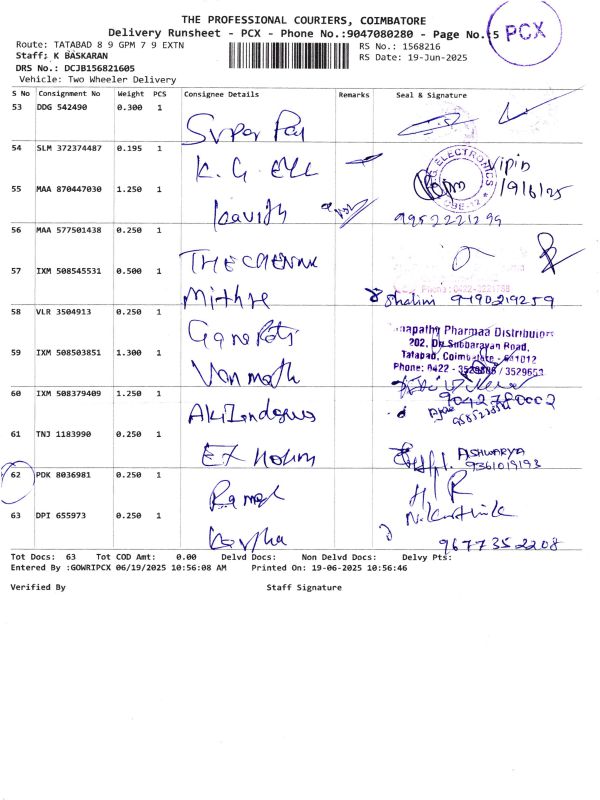 THE PROFESSIONAL COURIERS, COIMBATORE
Delivery Runsheet - PCX - Phone No.:9047080280 - Page No.:5
PCX
Route: TATABAD 8 9 GPM 7 9 EXTN
RS No.: 1568216
Staff: K BASKARAN
RS Date: 19-Jun-2025
DRS No.: DCJB156821605
Vehicle: Two Wheeler Delivery
S No Consignment No Weight PCS Consignee Details Remarks Seal & Signature
53 DDG 542490 0.300 1
Super
54 SLM 372374487 0.195 1
K. G. ELECTRONICS Vipin
19/6/25
CBE-12
55 MAA 870447030 1.250 1
Kavith
9952221299
56 MAA 577501438 0.250 1
THE CHENNAI
57 IXM 508545531 0.500 1
Phone: 0422-3221788
Mithre Shalini 9490219259
58 VLR 3504913 0.250 1
Ganapati
Ganapathy Pharmaa Distributors
202, Dr. Subbarayan Road,
Tatabad, Coimbatore - 641012
Phone: 0422 - 3529886 / 3529653
59 IXM 508503851 1.300 1
Vanmath
60 IXM 508379409 1.250 1
9042780002
Akilandeswa
61 TNJ 1183990 0.250 1
ASHWARYA
9361019193
62 PDK 8036981 0.250 1
Ramesh
63 DPI 655973 0.250 1
N. Karthik
Kavtha
9677352208
Tot Docs: 63 Tot COD Amt: 0.00 Delvd Docs: Non Delvd Docs: Delvy Pts:
Entered By :GOWRIPCX 06/19/2025 10:56:08 AM Printed On: 19-06-2025 10:56:46
Verified By Staff Signature